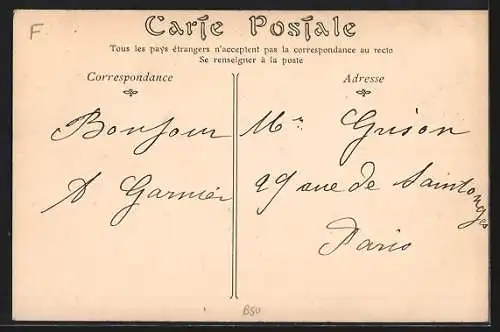 F
Carte Postale
Tous les pays étrangers n'acceptent pas la correspondance au recto
Se renseigner à la poste
Correspondance
Bonjour
A Garnier
Adresse
Mr Grison
29 rue de Saintonges
Paris
B50